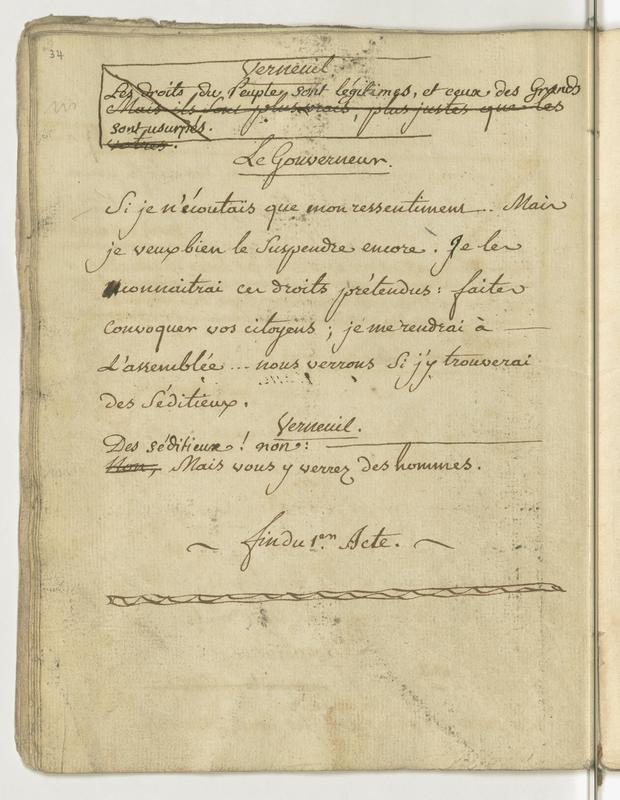 34
Verneuil
Les droits du Peuple sont légitimes, et ceux des Grands
Mais ils sont plus vrais, plus justes que les
sont usurpés.
votres.
Le Gouverneur.
Si je n'écoutais que mon ressentiment... Mais
je veux bien le suspendre encore. Je les
connaitrai ces droits prétendus : faites
convoquer vos citoyens ; je me rendrai à
L'assemblée ... nous verrons si j'y trouverai
des séditieux.
Verneuil.
Des séditieux ! non :
Non, Mais vous y verrez des hommes.
fin du 1er Acte.